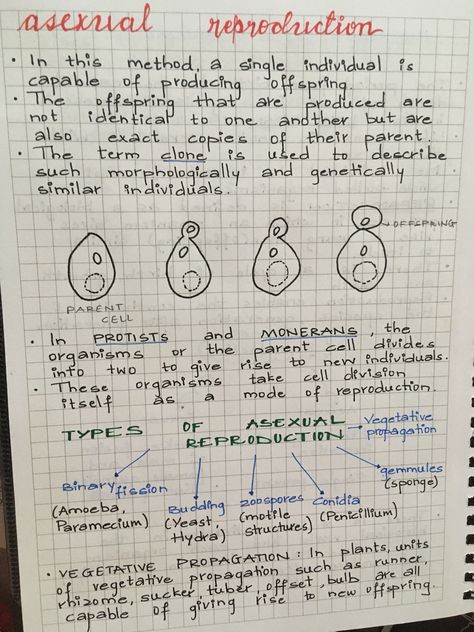 asexual reproduction
• In this method, a single individual is
capable of producing offspring.
• The offspring that are produced are
not identical to one another but are
also exact copies of their parent.
• The term clone is used to describe
such morphologically and genetically
similar individuals.
OFFSPRING
PARENT
CELL
• In PROTISTS and MONERANS, the
organisms or the parent cell divides
into two to give rise to new individuals.
• These organisms take cell division
itself as a mode of reproduction.
TYPES OF ASEXUAL
REPRODUCTION
Vegetative
propagation
Binary
fission
(Amoeba,
Paramecium)
Budding
(Yeast,
Hydra)
zoospores
(motile
structures)
Conidia
(Penicillium)
gemmules
(sponge)
• VEGETATIVE PROPAGATION: In plants, units
of vegetative propagation such as runner,
rhizome, sucker, tuber, offset, bulb are all
capable of giving rise to new offspring.